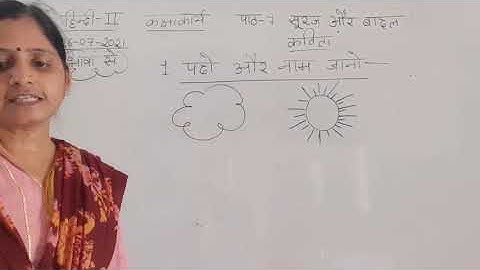 हिन्दी-II कक्षाकार्य पाठ-7 सूरज और बादल
-07-2021 कविता
से
1 पढो और नाम जानो-